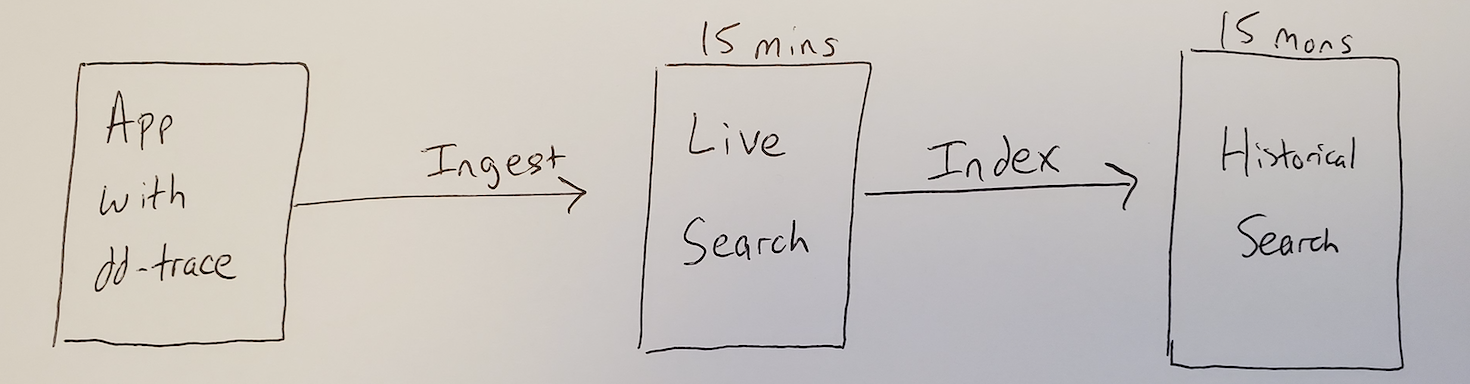 App
with
dd-trace
Ingest
15 mins
Live
Search
Index
15 mons
Historical
Search